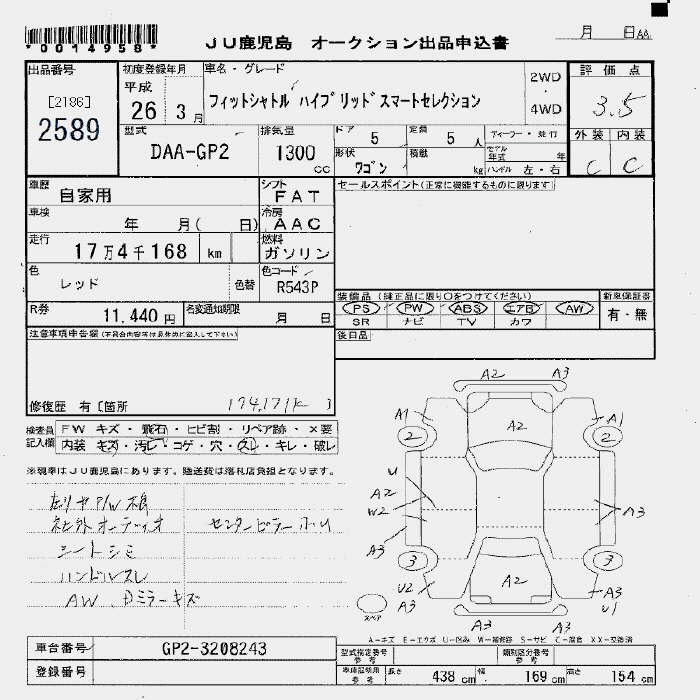 *0014958*
JU鹿児島 オークション出品申込書
月 日AA
出品番号
[2186]
2589
初度登録年月
平成
26 3月
車名・グレード
フィットシャトル ハイブリッドスマートセレクション
2WD
・
4WD
評価点
3.5
外装 内装
C C
型式
DAA-GP2
排気量
1300
cc
ドア
5
定員
5人
ディーラー・並行
形状
ワゴン
積載
kg
モデル年式 年
ハンドル 左・右
車歴
自家用
シフト
FAT
セールスポイント(正常に機能するものに限ります)
車検
年 月( 日)
冷房
AAC
走行
17万4千168 km
燃料
ガソリン
色
レッド
色替
色コード
R543P
R券
11,440円
名変通知期限
月 日
装備品(純正品に限り○をつけてください)
PS PW ABS エアB AW
SR ナビ TV カワ
新車保証書
有・無
後日品
注意事項申告欄
修復歴 有〔箇所
174,171K 〕
検査員記入欄
FW キズ・飛石・ヒビ割・リペア跡・×要
内装 キズ・汚レ・コゲ・穴・スレ・キレ・破レ
※現車はJU鹿児島にあります。陸送費は落札店負担となります。
社外オーディオ
センターピラー
シートシミ
ハンドルスレ
AW、Dミラーキズ
A2 A3
A1 A2 A1
2 2
U
A2
W2
A3
A3
3 3
U2 A2 A3
A3 U1
A3 A3
スペア
A-キズ E-エクボ U-凹み W-補修跡 S-サビ C-腐食 XX-交換済
車台番号
GP2-3208243
登録番号
型式指定番号
参考
類別区分番号
参考
車庫証明用
参考
長さ 438cm 幅 169cm 高さ 154cm